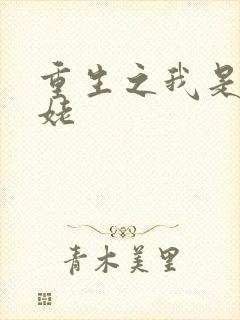 重生之我是
姥
青木美里